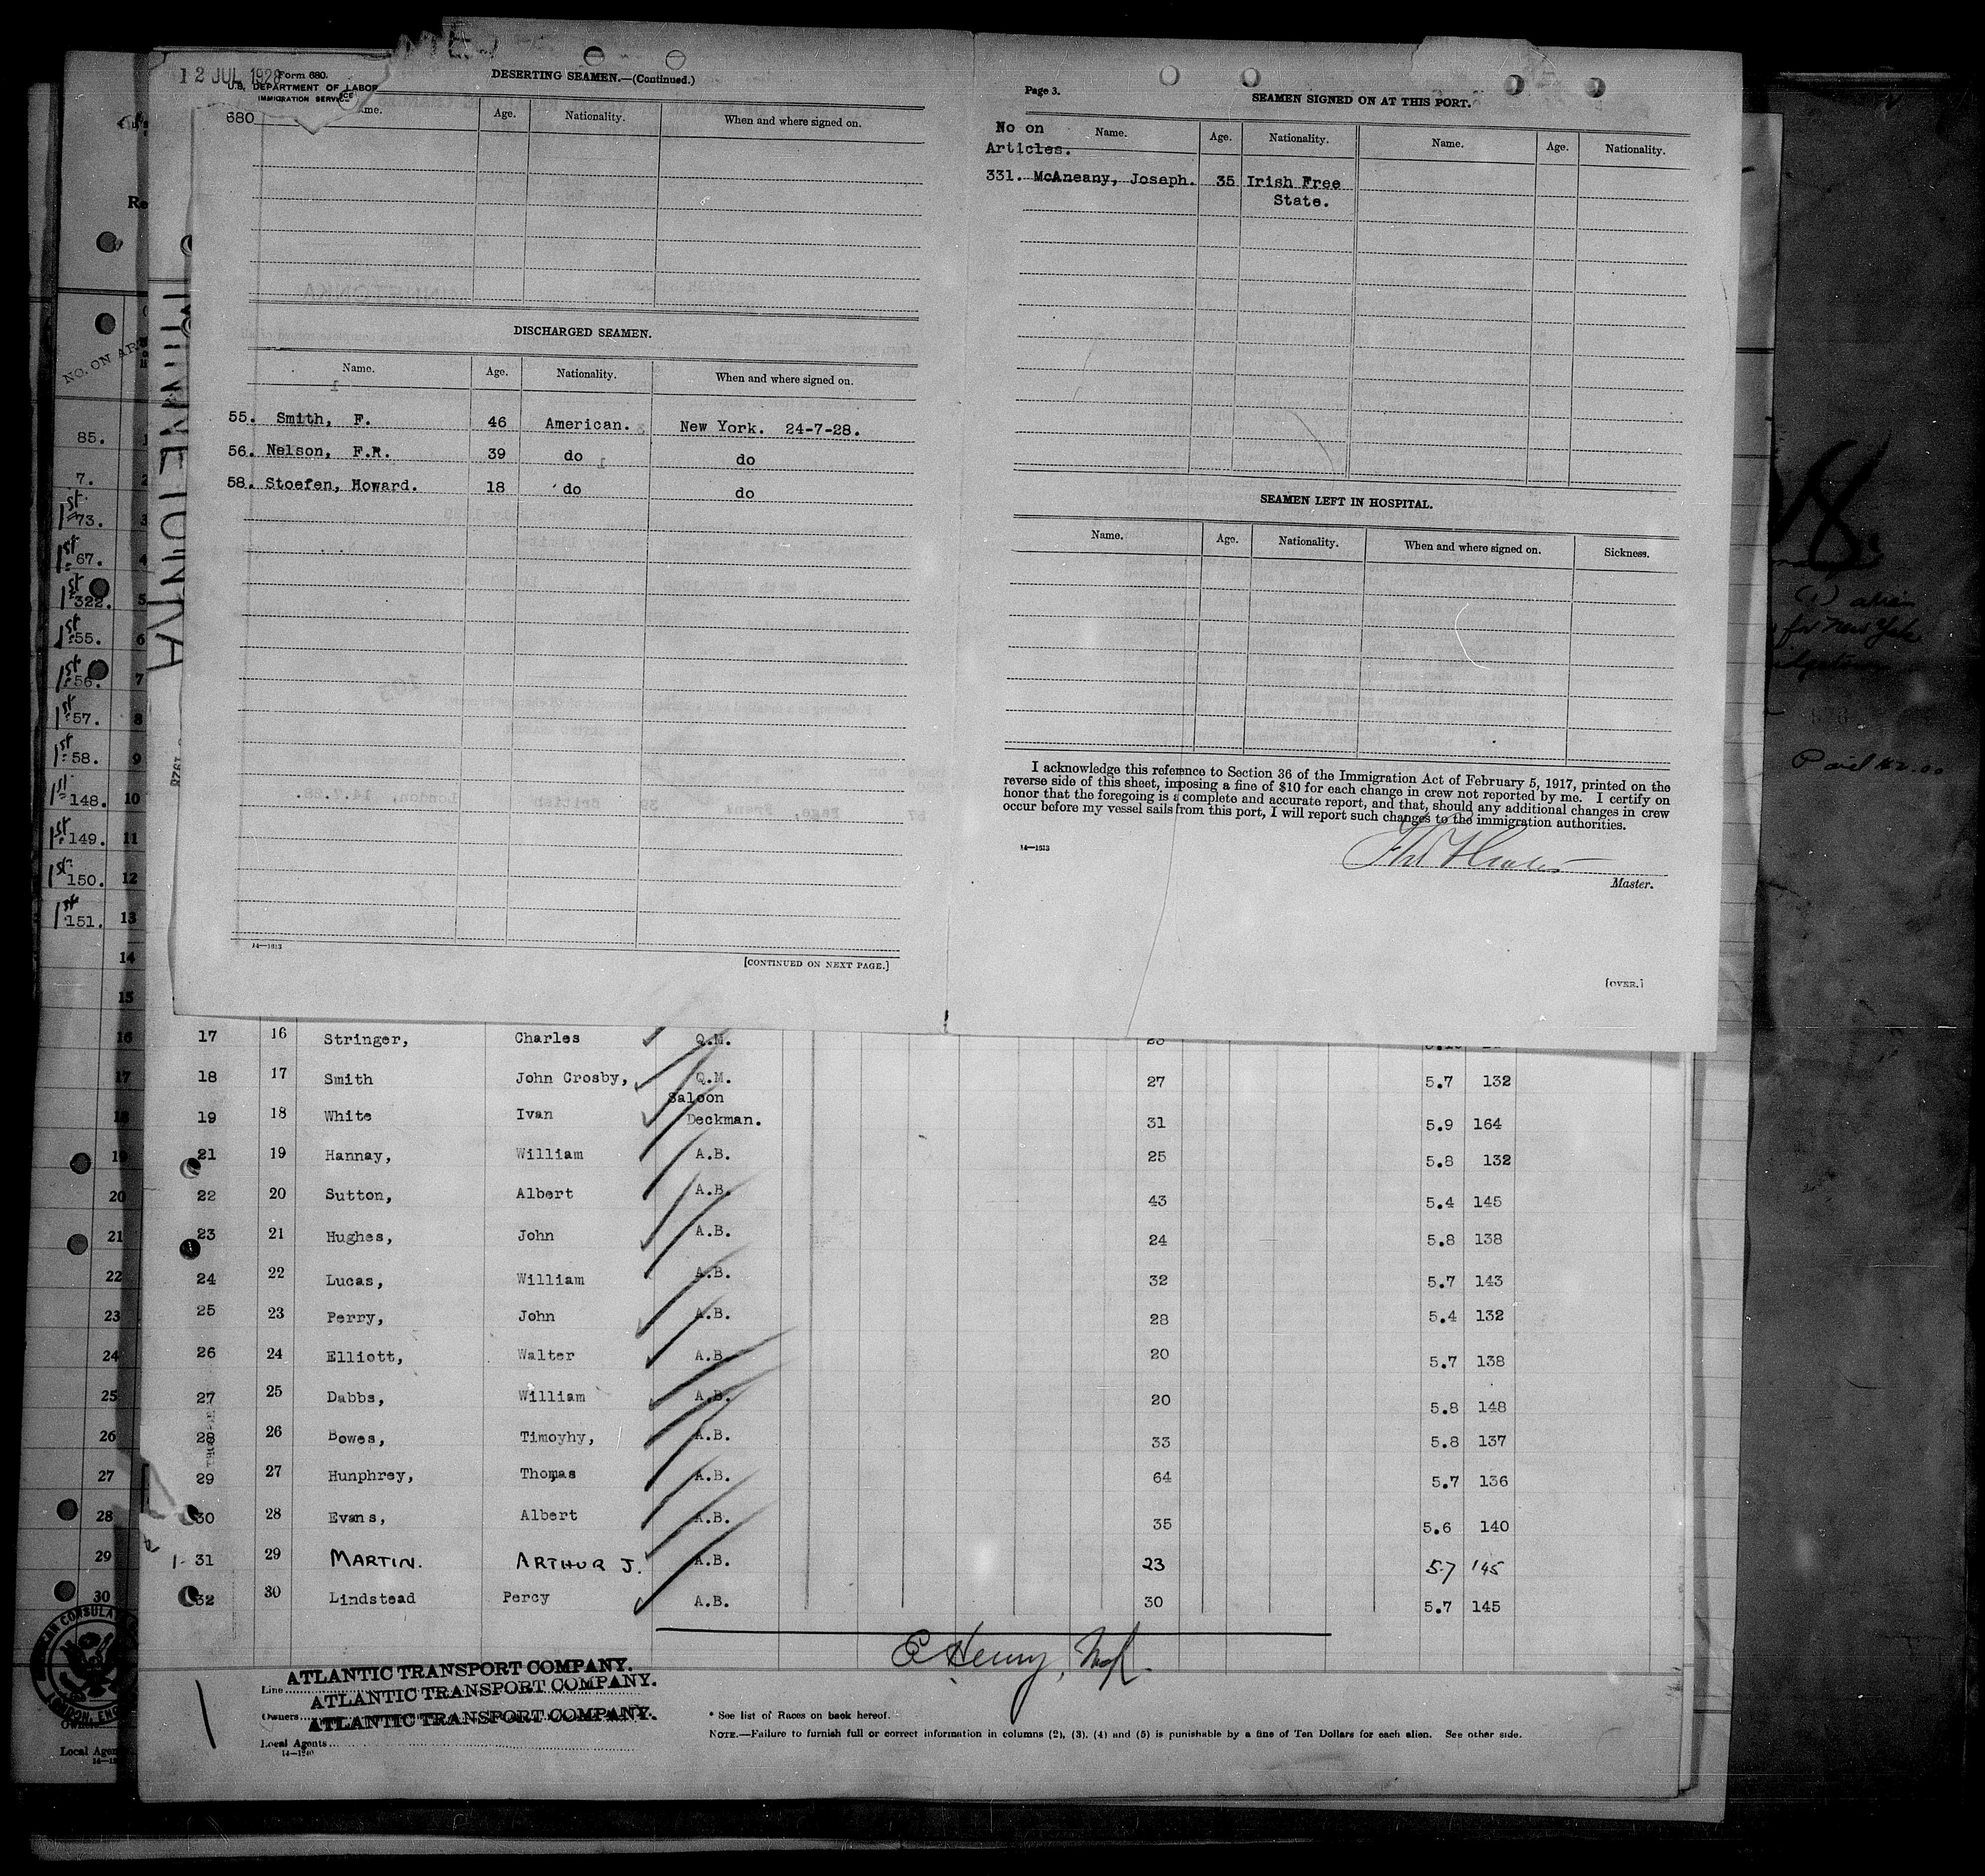 12 JUL 1928
Form 680.
U.S. DEPARTMENT OF LABOR
IMMIGRATION SERVICE
680
DESERTING SEAMEN.—(Continued.)
Age. Nationality. When and where signed on.
DISCHARGED SEAMEN.
Name. Age. Nationality. When and where signed on.
55. Smith, F. 46 American. New York. 24-7-28.
56. Nelson, F.R. 39 do do
58. Stoefen, Howard. 18 do do
14—1613
[CONTINUED ON NEXT PAGE.]
Page 3.
SEAMEN SIGNED ON AT THIS PORT.
No on Articles. Name. Age. Nationality. Name. Age. Nationality.
331. McAneany, Joseph. 35 Irish Free
State.
SEAMEN LEFT IN HOSPITAL.
Name. Age. Nationality. When and where signed on. Sickness.
I acknowledge this reference to Section 36 of the Immigration Act of February 5, 1917, printed on the
reverse side of this sheet, imposing a fine of $10 for each change in crew not reported by me. I certify on
honor that the foregoing is a complete and accurate report, and that, should any additional changes in crew
occur before my vessel sails from this port, I will report such changes to the immigration authorities.
14—1613
Master.
[OVER.]
NO. ON AR
85. 1
7. 2
1st 73. 3
1st 67. 4
1st 322. 5
1st 55. 6
1st 56. 7
1st 57. 8
1st 58. 9
1st 148. 10
1st 149. 11
1st 150. 12
1st 151. 13
14
15
16
17
18
19
20
21
22
23
24
25
26
27
28
29
30
17 16 Stringer, Charles Q.M.
18 17 Smith John Crosby, Q.M. 27 5.7 132
19 18 White Ivan Saloon Deckman. 31 5.9 164
21 19 Hannay, William A.B. 25 5.8 132
22 20 Sutton, Albert A.B. 43 5.4 145
23 21 Hughes, John A.B. 24 5.8 138
24 22 Lucas, William A.B. 32 5.7 143
25 23 Perry, John A.B. 28 5.4 132
26 24 Elliott, Walter A.B. 20 5.7 138
27 25 Dabbs, William A.B. 20 5.8 148
28 26 Bowes, Timoyhy, A.B. 33 5.8 137
29 27 Hunphrey, Thomas A.B. 64 5.7 136
30 28 Evans, Albert A.B. 35 5.6 140
1- 31 29 MARTIN. ARTHUR J. A.B. 23 5.7 145
32 30 Lindstead Percy A.B. 30 5.7 145
ATLANTIC TRANSPORT COMPANY.
Line ATLANTIC TRANSPORT COMPANY.
Owners ATLANTIC TRANSPORT COMPANY.
Local Agents
14—1240
* See list of Races on back hereof.
NOTE.—Failure to furnish full or correct information in columns (2), (3), (4) and (5) is punishable by a fine of Ten Dollars for each alien. See other side.
Local Agen
(1) alien
for New York